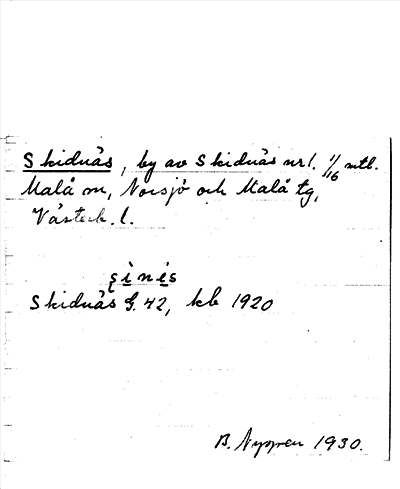 Skidnäs, by av Skidnäs nr 1. 1/16 mtl.
Malå sn, Norsjö och Malå tg,
Västerb. l.
Skidnäs G. 42, kb 1920
B. Nygren 1930.